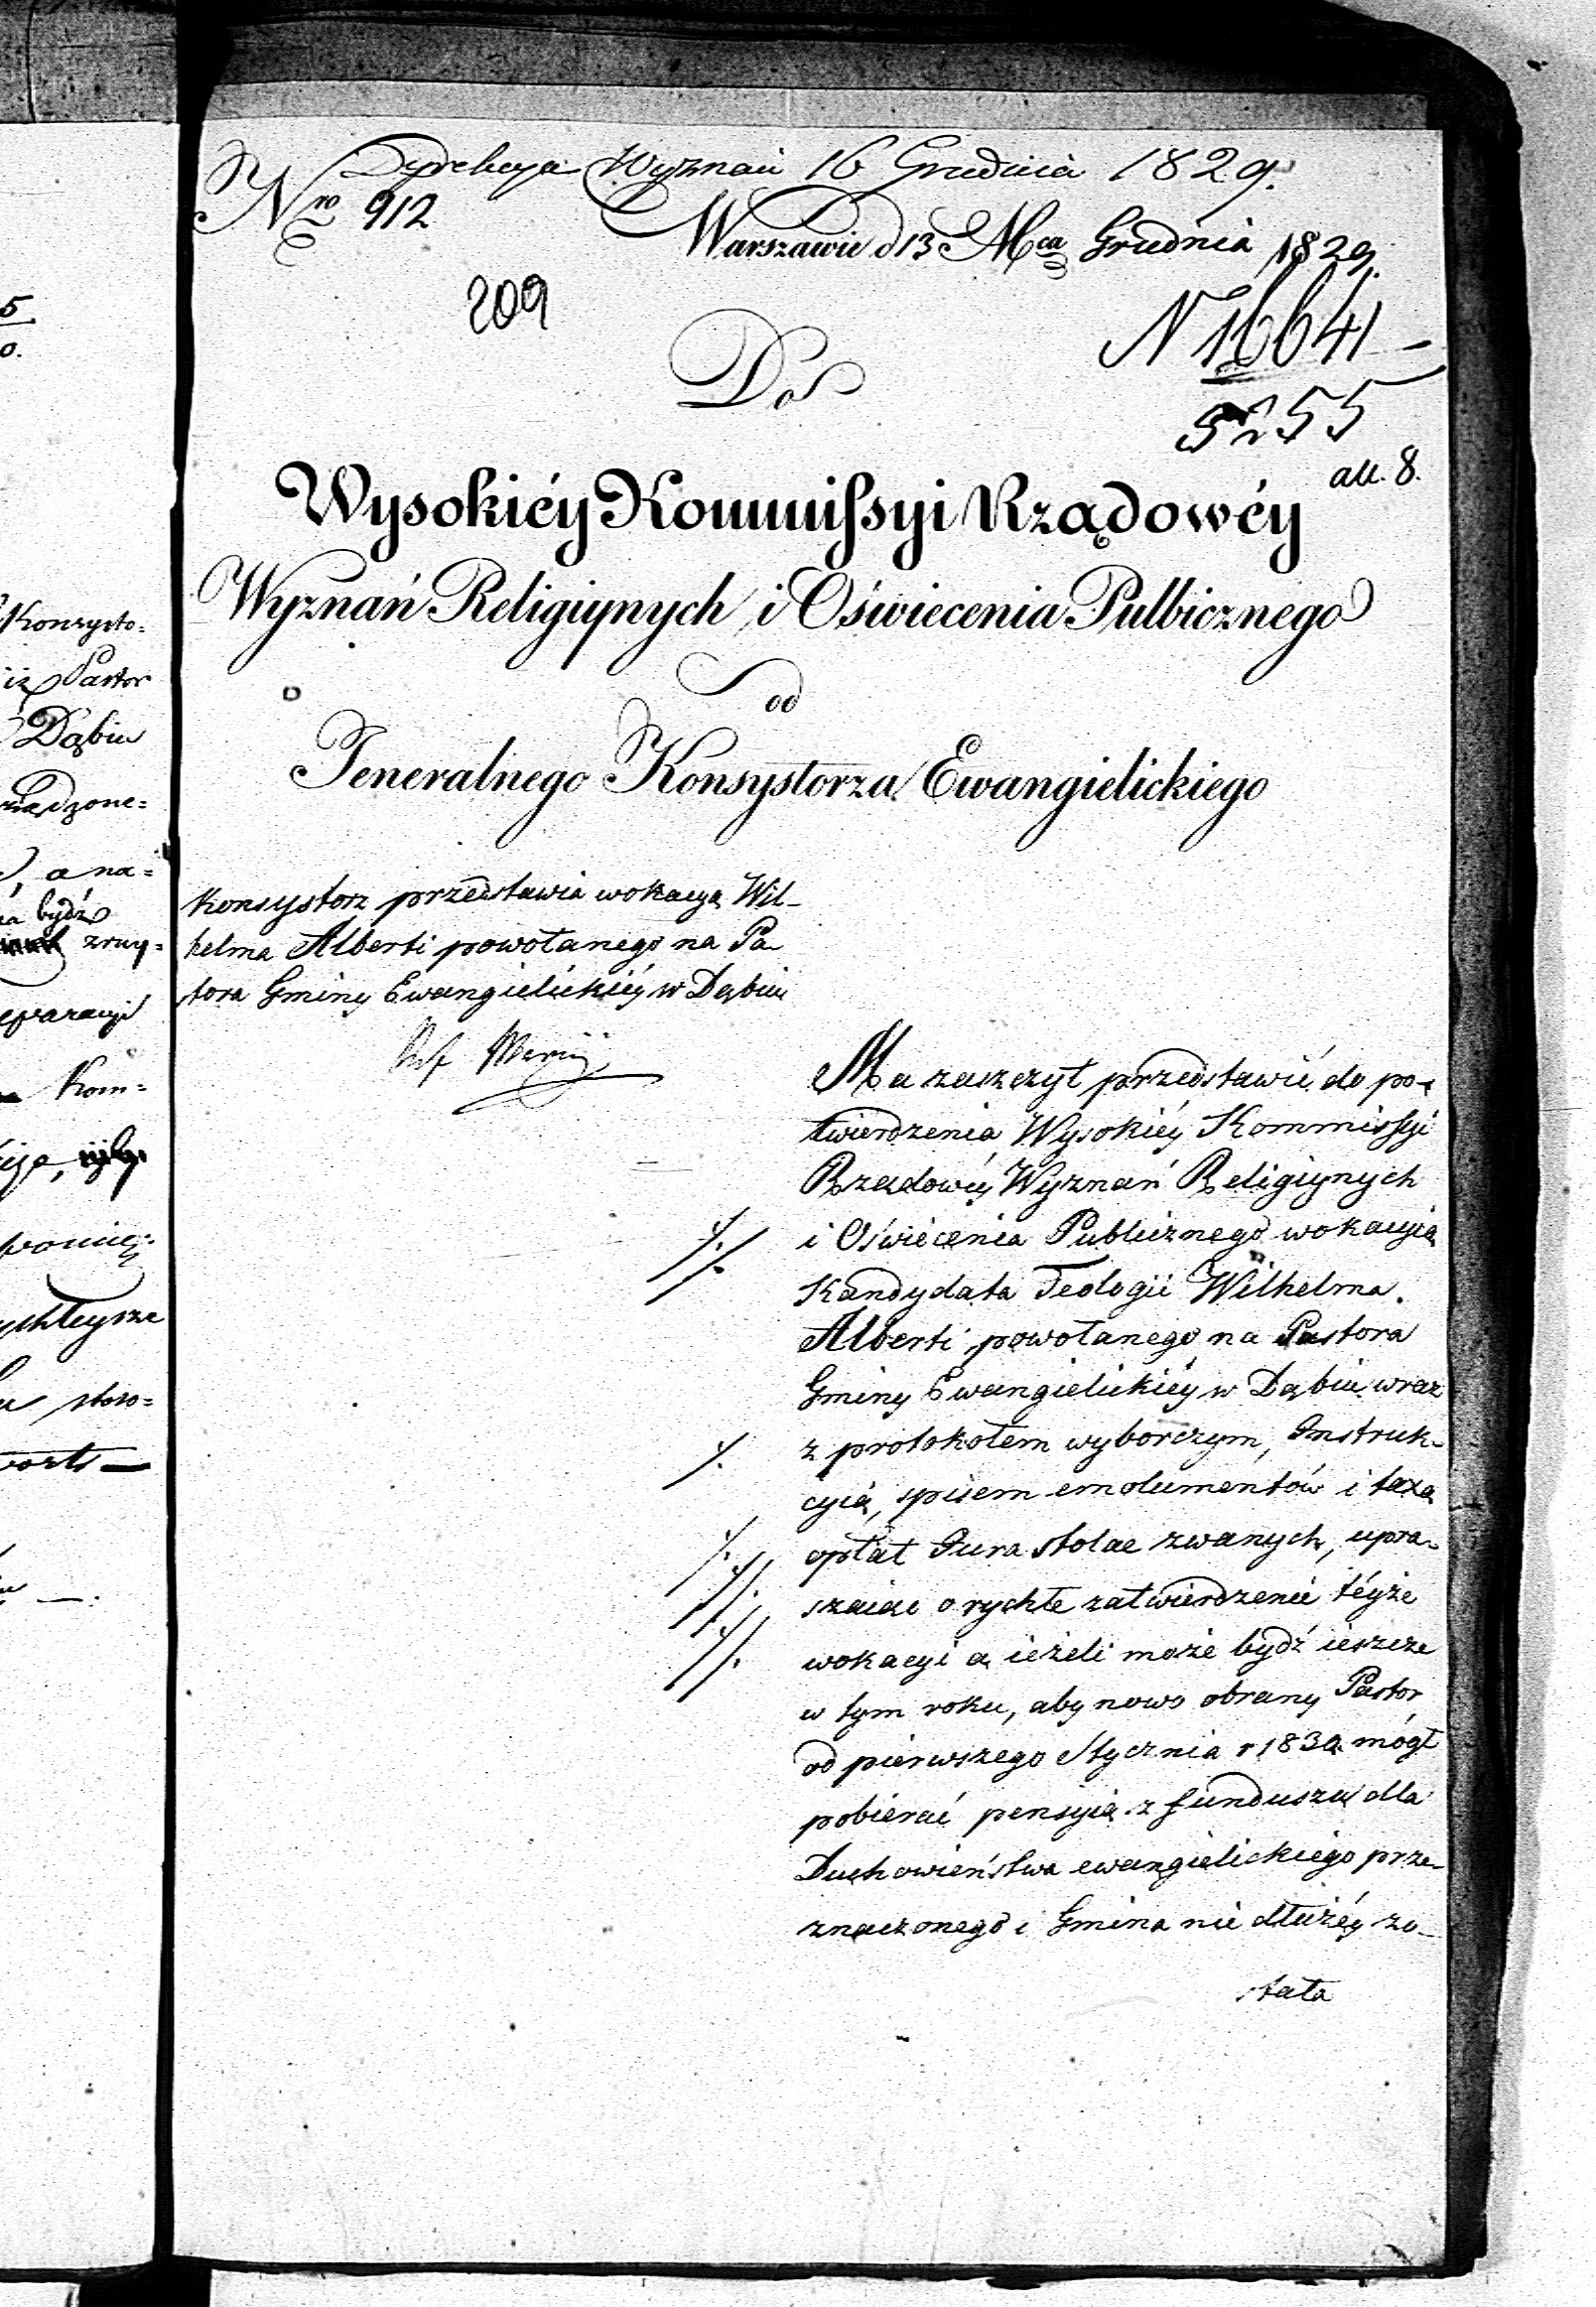 5
0.
Konsysto=
iż Pastor
Dąbiu
rządzone=
, a na=
bydź
zruy=
eparacyi
Kom=
ychleysze
stoso=
Dyrekcya Wyznań 16 Grudnia 1829.
Nro 912
Warszawie d 13 Mca Grudnia 1829.
209
N 16641
5255
all. 8.
Do
Wysokiéy Kommissyi Rządowéy
Wyznań Religiynych i Oświecenia Pulbicznego
od
Jeneralnego Konsystorza Ewangielickiego
Konsystorz przedstawia wokacyą Wil-
helma Alberti powołanego na Pa-
stora Gminy Ewangielickiéy w Dąbiu
Ma zaszczyt przedstawić do po-
twierdzenia Wysokiéy Kommissyi
Rządowéy Wyznań Religiynych
i Oświecenia Publicznego wokacyią
Kandydata Teologii Wilhelma
Alberti powołanego na Pastora
Gminy Ewangielickiéy w Dąbiu wraz
z protokołem wyborczym, Instruk-
cyią, spisem emolumentów i taxą
opłat Jura stolae zwanych, upra-
szaiąc o rychłe zatwierdzenie téyże
wokacyi a ieżeli może bydź ieszcze
w tym roku, aby nowo obrany Pastor
od pierwszego Stycznia r 1830 mógł
pobierać pensyią z funduszu dla
Duchowieństwa ewangielickiego prze-
znaczonego i Gmina nie dłużéy zo-
stała